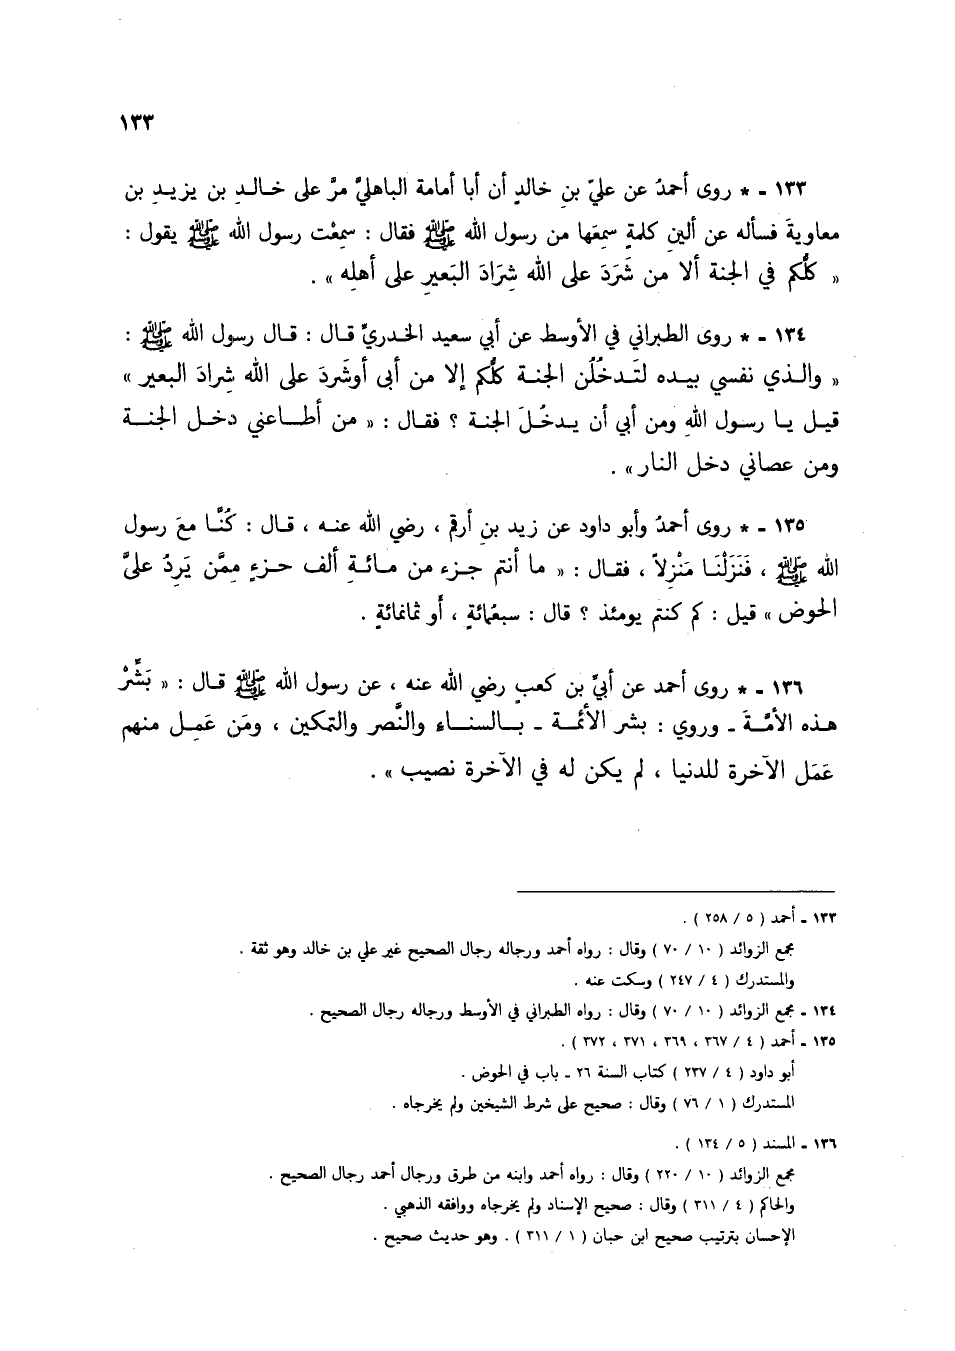 ١٣٣
١٣٣ - * روى أحمدُ عن عليّ بنِ خالدٍ أن أبا أمامة الباهليَّ مرَّ على خالدِ بن يزيدِ بن
معاويةَ فسأله عن ألينِ كلمةٍ سمِعَها من رسول الله ﷺ فقال : سمِعْت رسول الله ﷺ يقول :
« كلُّكم في الجنة ألا من شَرَدَ على الله شِرَادَ البَعيرِ على أهلِه » .
١٣٤ - * روى الطبراني في الأوسط عن أبي سعيد الخدريِّ قال : قال رسول الله ﷺ :
« والذي نفسي بيده لتَدخُلُن الجنة كلُّكم إلا من أبى أوشَردَ على الله شِرادَ البعير »
قيل يا رسول اللهِ ومن أبي أن يدخُلَ الجنة ؟ فقال : « من أطاعني دخل الجنة
ومن عصاني دخل النار » .
١٣٥ - * روى أحمدُ وأبو داود عن زيد بنِ أرقم ، رضي الله عنه ، قال : كُنَّا معَ رسول
الله ﷺ ، فَنَزَلْنَا مَنْزِلاً ، فقال : « ما أنتم جزء من مائةِ ألف جزءٍ مِمَّن يَرِدُ عليَّ
الحوض » قيل : كم كنتم يومئذ ؟ قال : سبعُمائةٍ ، أَو ثمانمائةٍ .
١٣٦ - * روى أحمد عن أبيِّ بن كعبٍ رضي الله عنه ، عن رسول الله ﷺ قال : « بَشِّرْ
هذه الأمَّةَ - وروي : بشر الأئمة - بالسناء والنَّصر والتمكين ، ومَن عَمِل منهم
عَمَل الآخرة للدنيا ، لم يكن له في الآخرة نصيب » .
١٣٣ - أحمد ( ٥ / ٢٥٨ ) .
مجمع الزوائد ( ١٠ / ٧٠ ) وقال : رواه أحمد ورجاله رجال الصحيح غير علي بن خالد وهو ثقة .
والمستدرك ( ٤ / ٢٤٧ ) وسكت عنه .
١٣٤ - مجمع الزوائد ( ١٠ / ٧٠ ) وقال : رواه الطبراني في الأوسط ورجاله رجال الصحيح .
١٣٥ - أحمد ( ٤ / ٣٦٧ ، ٣٦٩ ، ٣٧١ ، ٣٧٢ ) .
أبو داود ( ٤ / ٢٣٧ ) كتاب السنة ٢٦ - باب في الحوض .
المستدرك ( ١ / ٧٦ ) وقال : صحيح على شرط الشيخين ولم يخرجاه .
١٣٦ - المسند ( ٥ / ١٣٤ ) .
مجمع الزوائد ( ١٠ / ٢٢٠ ) وقال : رواه أحمد وابنه من طرق ورجال أحمد رجال الصحيح .
والحاكم ( ٤ / ٣١١ ) وقال : صحيح الإسناد ولم يخرجاه ووافقه الذهبي .
الإحسان بترتيب صحيح ابن حبان ( ١ / ٣١١ ) . وهو حديث صحيح .